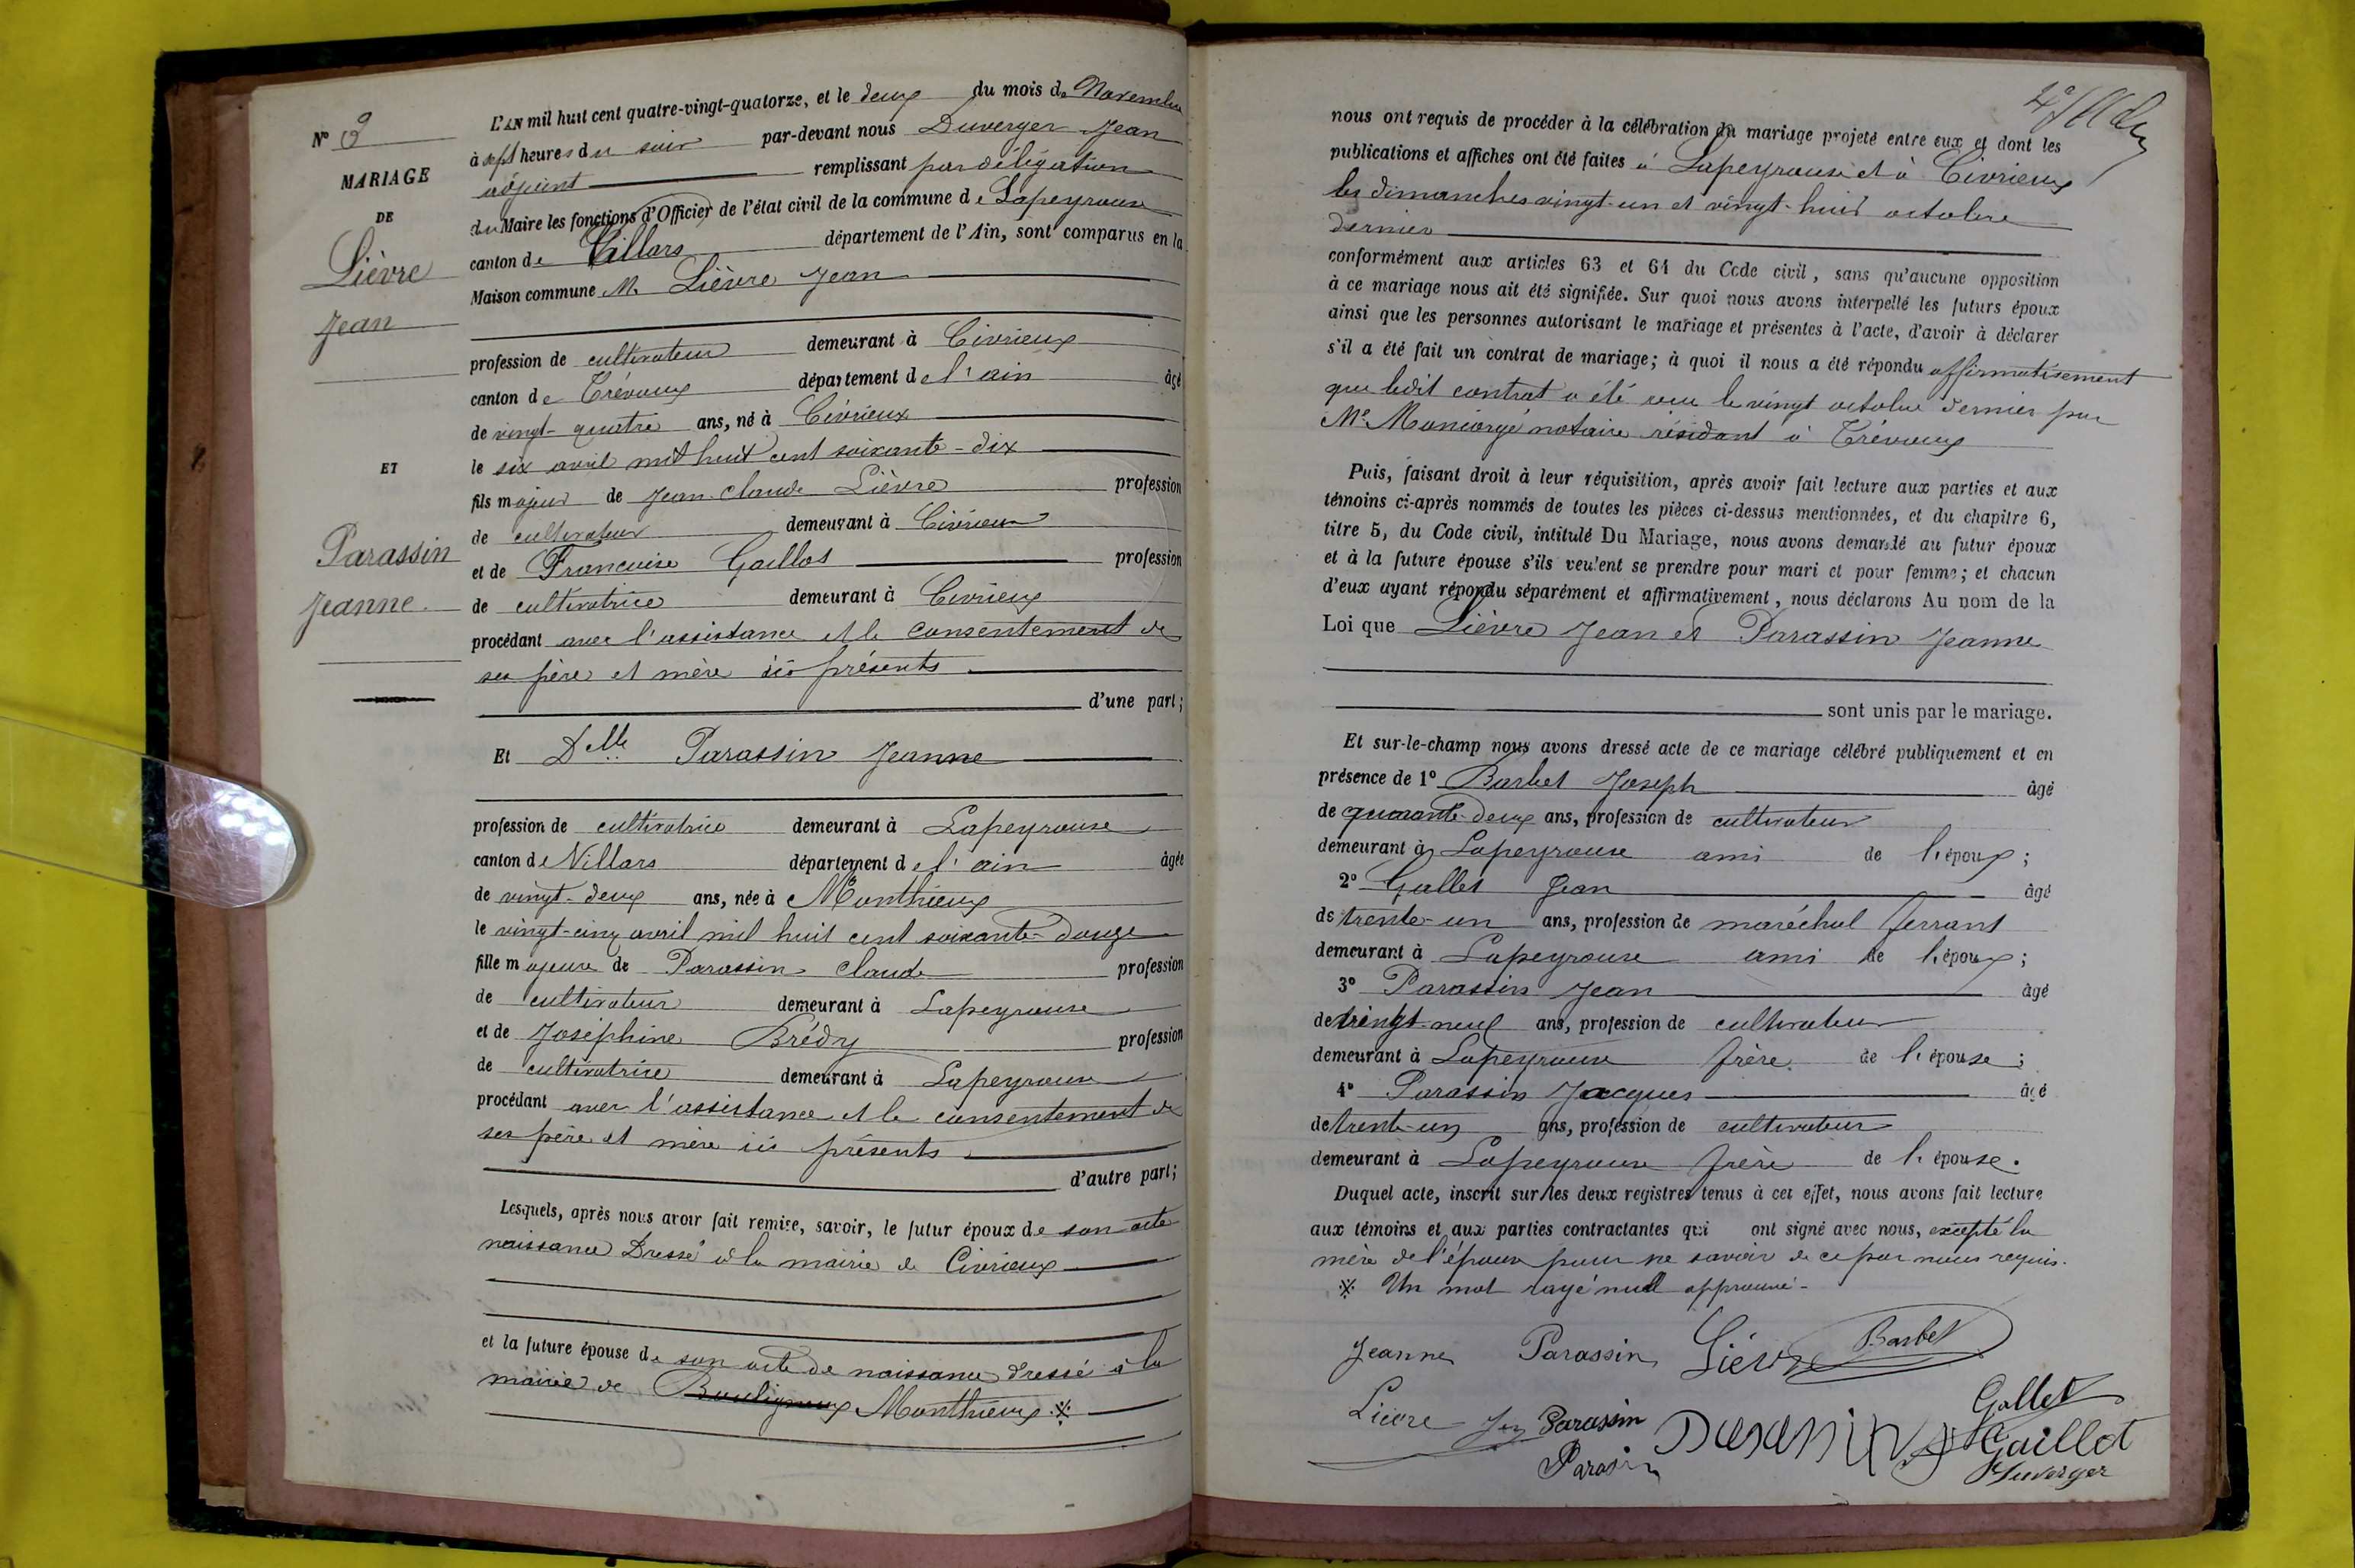 N° 9
MARIAGE
DE
Lièvre
Jean
ET
Parassin
Jeanne
L'AN mil huit cent quatre-vingt-quatorze, et le deux du mois de Novembre
à sept heures du soir par-devant nous Duverger Jean
adjoint remplissant par délégation
du Maire les fonctions d'Officier de l'état civil de la commune de Lapeyrouse
canton de Villars département de l'Ain, sont comparus en la
Maison commune M. Lièvre Jean
profession de cultivateur demeurant à Civrieux
canton de Trévoux département de l'ain âgé
de vingt-quatre ans, né à Civrieux
le six avril mil huit cent soixante-dix
fils majeur de Jean-Claude Lièvre profession
de cultivateur demeurant à Civrieux
et de Françoise Gaillot profession
de cultivatrice demeurant à Civrieux
procédant avec l'assistance et le consentement de
ses père et mère ici présents
d'une part;
Et Delle Parassin Jeanne
profession de cultivatrice demeurant à Lapeyrouse
canton de Villars département de l'ain âgée
de vingt-deux ans, née à Monthieux
le vingt-cinq avril mil huit cent soixante-douze
fille majeure de Parassin Claude profession
de cultivateur demeurant à Lapeyrouse
et de Joséphine Brédy profession
de cultivatrice demeurant à Lapeyrouse
procédant avec l'assistance et le consentement de
ses père et mère ici présents
d'autre part;
Lesquels, après nous avoir fait remise, savoir, le futur époux de son acte
naissance dressé à la mairie de Civrieux
et la future épouse de son acte de naissance dressé à la
mairie de Bouligneux Monthieux ※
nous ont requis de procéder à la célébration du mariage projeté entre eux et dont les
publications et affiches ont été faites à Lapeyrouse et à Civrieux
les dimanches vingt-un et vingt-huit octobre
dernier
conformément aux articles 63 et 64 du Code civil, sans qu'aucune opposition
à ce mariage nous ait été signifiée. Sur quoi nous avons interpellé les futurs époux
ainsi que les personnes autorisant le mariage et présentes à l'acte, d'avoir à déclarer
s'il a été fait un contrat de mariage; à quoi il nous a été répondu affirmativement
que ledit contrat a été reçu le vingt octobre dernier par
Me notaire résidant à Trévoux
Puis, faisant droit à leur réquisition, après avoir fait lecture aux parties et aux
témoins ci-après nommés de toutes les pièces ci-dessus mentionnées, et du chapitre 6,
titre 5, du Code civil, intitulé Du Mariage, nous avons demandé au futur époux
et à la future épouse s'ils veulent se prendre pour mari et pour femme; et chacun
d'eux ayant répondu séparément et affirmativement, nous déclarons Au nom de la
Loi que Lièvre Jean et Parassin Jeanne
sont unis par le mariage.
Et sur-le-champ nous avons dressé acte de ce mariage célébré publiquement et en
présence de 1° Barbet Joseph âgé
de quarante-deux ans, profession de cultivateur
demeurant à Lapeyrouse ami de l'époux;
2° Gallet Jean âgé
de trente-un ans, profession de maréchal ferrant
demeurant à Lapeyrouse ami de l'époux;
3° Parassin Jean âgé
de vingt-neuf ans, profession de cultivateur
demeurant à Lapeyrouse frère de l'épouse;
4° Parassin Jacques âgé
de trente-un ans, profession de cultivateur
demeurant à Lapeyrouse frère de l'épouse.
Duquel acte, inscrit sur les deux registres tenus à cet effet, nous avons fait lecture
aux témoins et aux parties contractantes qui ont signé avec nous, excepté la
mère de l'époux pour ne savoir de ce par nous requis.
※ Un mot rayé null approuvé.
Jeanne Parassin Lièvre Barbet
Gallet
Lièvre Parassin Parassin Gaillot
Parassin Duverger